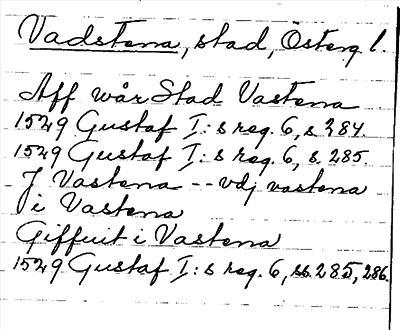 Vadstena, stad, Österg. l.
Aff wår Stad Vastena
1529 Gustaf I:s reg. 6, s. 284.
1529 Gustaf I:s reg. 6, s. 285.
J Vastena -- vdj vastena
i Vastena
Giffuit i Vastena
1529 Gustaf I:s reg. 6, ss. 285, 286.